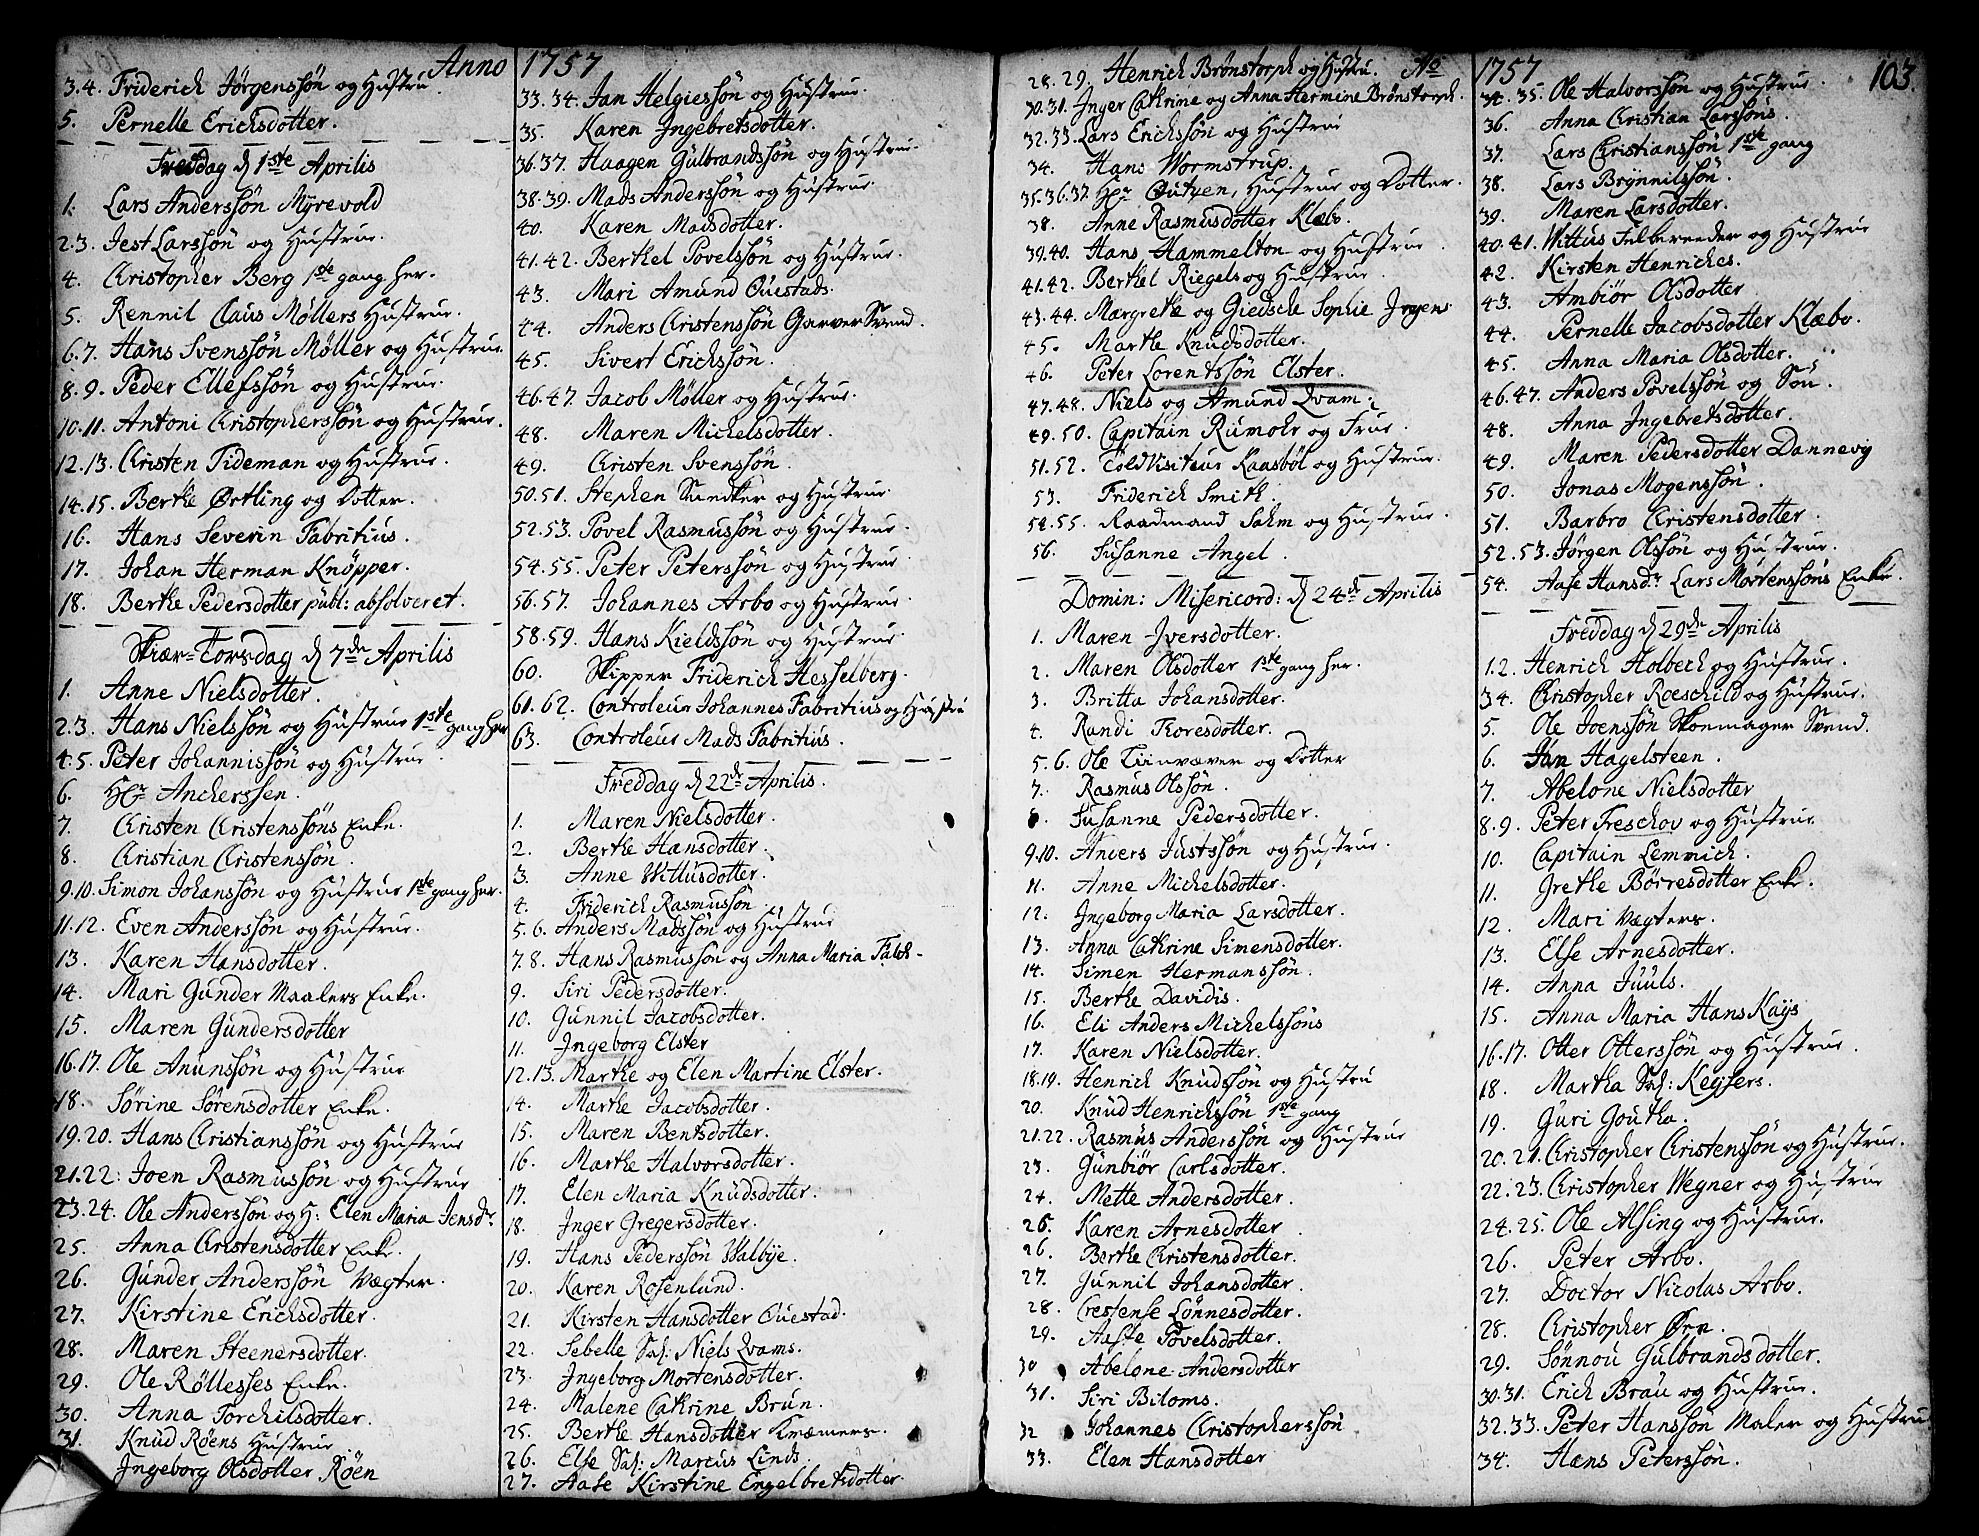 Anno 1757
3.4. Friderich Jørgenssøn og Hustru
5. Pernelle Erichsdotter.
Freddag d 1ste Aprilis
1. Lars Anderssøn Myrevold
2.3. Jest Larssøn og Hustrue.
4. Christopher Berg 1ste gang her.
5. Rennil Claus Møllers Hustrue.
6.7. Hans Svenssøn Møller og Hustrue.
8.9. Peder Ellefssøn og Hustrue.
10.11. Antoni Christopherssøn og Hustrue.
12.13. Christen Tideman og Hustrue.
14.15. Berthe Ørtling og Dotter.
16. Hans Severin Fabritius.
17. Johan Herman Knøpper.
18. Berthe Pedersdotter publ: absolveret.
Skiær-Torsdag d 7de Aprilis
1. Anne Nielsdotter.
2.3. Hans Nielssøn og Hustrue 1ste gang her
4.5. Peter Johannissøn og Hustrue
6. Hr Ancherssen.
7. Christen Christenssøns Enke.
8. Christian Christenssøn.
9.10. Simon Johanssøn og Hustrue 1ste gang her.
11.12. Even Anderssøn og Hustrue.
13. Karen Hansdotter.
14. Mari Gunder Maalers Enke.
15. Maren Gundersdotter
16.17. Ole Anunssøn og Hustrue
18. Sørine Sørensdotter Enke.
19.20. Hans Christianssøn og Hustrue
21.22. Joen Rasmussøn og Hustrue
23.24. Ole Anderssøn og H: Elen Maria Jensdr.
25. Anna Christensdotter Enke.
26. Gunder Anderssøn Vægter.
27. Kirstine Erichsdotter.
28. Maren Steenersdotter.
29. Ole Røllesses Enke.
30. Anna Torchilsdotter.
31. Knud Røens Hustrue
Ingeborg Olsdotter Røen
33.34. Jan Helgiessøn og Hustrue.
35. Karen Ingebretsdotter.
36.37. Haagen Gulbrandssøn og Hustrue.
38.39. Mads Anderssøn og Hustrue.
40. Karen Madsdotter.
41.42. Berthel Povelssøn og Hustrue.
43. Mari Amund Ouestads.
44. Anders Christenssøn Garver Svend.
45. Sivert Erichssøn.
46.47. Jacob Møller og Hustrue.
48. Maren Michelsdotter.
49. Christen Svenssøn.
50.51. Stephen og Hustrue.
52.53. Povel Rasmussøn og Hustrue.
54.55. Peter Peterssøn og Hustrue
56.57. Johannes Arbo og Hustrue.
58.59. Hans Kieldssøn og Hustrue.
60. Skipper Friderich Hesselberg.
61.62. Controleur Johannes Fabritius og Hustru
63. Controleur Mads Fabritius.
Freddag d 22de Aprilis.
1. Maren Nielsdotter.
2. Berthe Hansdotter.
3. Anne Wittusdotter.
4. Friderich Rasmussøn
5.6. Anders Madssøn og Hustrue
7.8. Hans Rasmussøn og Anna Maria
9. Siri Pedersdotter.
10. Gunnil Jacobsdotter.
11. Ingeborg Elster
12.13. Marthe og Elen Martine Elster.
14. Marthe Jacobsdotter.
15. Maren Bentsdotter.
16. Marthe Halvorsdotter.
17. Elen Maria Knudsdotter.
18. Inger Gregersdotter.
19. Hans Pederssøn Walbye.
20. Karen Rosenlund.
21. Kirsten Hansdotter Ouestad.
22. Sebelle Sal: Niels Qvams.
23. Ingeborg Mortensdotter.
24. Malene Cathrine Brun.
25. Berthe Hansdotter Kræmers.
26. Else Sal: Marcus Linds.
27. Aase Kirstine Engelbretsdotter
Ao 1757 103.
28.29. Henrich Brønstorph og Hustru.
30.31. Inger Cathrine og Anna Hermine Brønstorph.
32.33. Lars Erichssøn og Hustrue
34. Hans Wormstrup.
35.36.37. Hr Hustrue og Dotter.
38. Anne Rasmusdotter Klæbo.
39.40. Hans Hammelton og Hustrue.
41.42. Berthel Riegels og Hustrue.
43.44. Margrethe og Giedsche Sophie
45. Marthe Knudsdotter.
46. Peter Lorentssøn Elster.
47.48. Niels og Amund Qvam.
49.50. Capitain Rumohr og Frue.
51.52. Told Visiteur Kaasbøl og Hustrue.
53. Friderich Smith.
54.55. Raadmand Sahm og Hustrue.
56. Susanne Angel.
Domin: Misericord: d 24de Aprilis
1. Maren Iversdotter.
2. Maren Olsdotter 1ste gang her.
3. Britta Johansdotter.
4. Randi Thoresdotter.
5.6. Ole og Dotter
7. Rasmus Olssøn.
8. Susanne Pedersdotter.
9.10. Anders Justssøn og Hustrue.
11. Anne Michelsdotter.
12. Ingeborg Maria Larsdotter.
13. Anna Cathrine Simensdotter.
14. Simen Hermanssøn.
15. Berthe Davidis.
16. Eli Anders Michelssøns
17. Karen Nielsdotter.
18.19. Henrich Knudssøn og Hustru
20. Knud Henrichssøn 1ste gang
21.22. Rasmus Anderssøn og Hustrue
23. Gunbiør Carlsdotter.
24. Mette Andersdotter.
25. Karen Arnesdotter
26. Berthe Christensdotter.
27. Gunnil Johansdotter.
28. Crestense Lønnesdotter.
29. Aaste Povelsdotter.
30 Abelone Andersdotter
31. Siri Biloms.
32 Johannes Christopherssøn
33. Elen Hansdotter
34.35. Ole Halvorssøn og Hustrue
36. Anna Christian Larssøns.
37. Lars Christianssøn 1ste gang
38. Lars Brynnilssøn.
39. Maren Larsdotter.
40.41. Wittus Felbereeder og Hustrue
42. Kirsten Henriches.
43. Ambiør Olsdotter
44. Pernelle Jacobsdotter Klæbo.
45. Anna Maria Olsdotter.
46.47. Anders Povelssøn og Søn.
48. Anna Ingebretsdotter.
49. Maren Pedersdotter Dannevig
50. Jonas Mogenssøn.
51. Barbro Christensdotter
52.53. Jørgen Olssøn og Hustrue.
54. Aase Hansdr Lars Mortenssøns Enke.
Freddag d 29de Aprilis
1.2. Henrich Holbech og Hustrue.
3.4. Christopher Roeschild og Hustrue.
5. Ole Joenssøn Skomager Svend.
6. Jan Hagelsteen.
7. Abelone Nielsdotter
8.9. Peter Treschov og Hustrue
10. Capitain Lemmich.
11. Grethe Børresdotter Enke.
12. Mari Vægters.
13. Else Arnesdotter.
14. Anna Juuls.
15. Anna Maria Hans Kays
16.17. Otter Otterssøn og Hustrue.
18. Martha Sal: Keysers.
19. Guri Goutha.
20.21. Christopher Christenssøn og Hustrue.
22.23. Christopher Wegner og Hustrue
24.25. Ole Alsing og Hustrue.
26. Peter Arbo.
27. Doctor Nicolas Arbo.
28. Christopher Ørn.
29. Sønnou Gulbrandsdotter.
30.31. Erich Brau og Hustrue.
32.33. Peter Hanssøn Maler og Hustru
34. Hans Peterssøn.